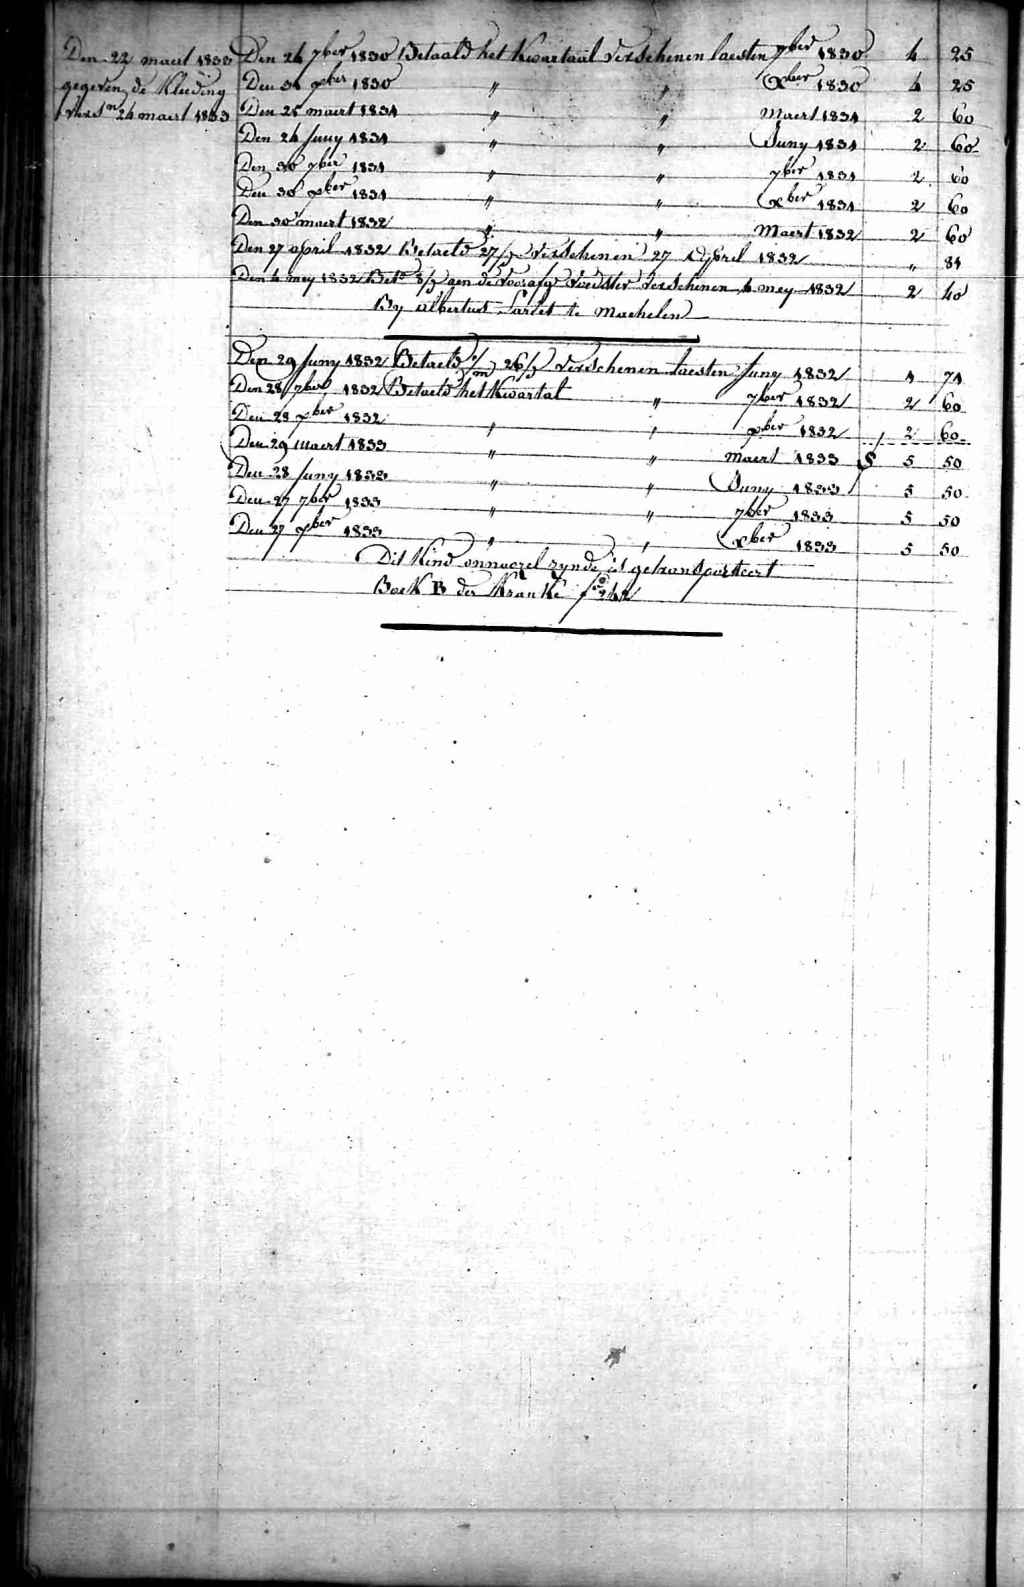 Den 22 maert 1833
gegeven de Kleeding
versn 24 maert 1833
Den 24 7ber 1830 Betaald het Kwartaal verschenen laesten 7ber 1830 4 25
Den 31 xber 1830 " " xber 1830 4 25
Den 25 maert 1831 " " Maert 1831 2 60
Den 24 Juny 1831 " " Juny 1831 2 60
Den 30 7ber 1831 " " 7ber 1831 2 60
Den 30 xber 1831 " " xber 1831 2 60
Den 30 maert 1832 " " Maert 1832 2 60
Den 27 april 1832 Betaeld 27/3 verschenen 27 April 1832 " 84
Den 4 mey 1832 Betd 8/3 aen de voorafge voedster verschenen 4 mey 1832 2 40
By albertus te Machelen
Den 29 Juny 1832 Betaeld 1/m 26/3 verschenen laesten Juny 1832 1 74
Den 28 7ber 1832 Betaeld het Kwartal " 7ber 1832 2 60
Den 28 xber 1832 " " xber 1832 2 60
Den 29 maert 1833 " " maert 1833 5 50
Den 28 Juny 1833 " " Juny 1833 5 50
Den 27 7ber 1833 " " 7ber 1833 5 50
Den 27 xber 1833 " " xber 1833 5 50
Dit Kind onnoozel zynde is getransporteert
Boek B der Kranke fo 242